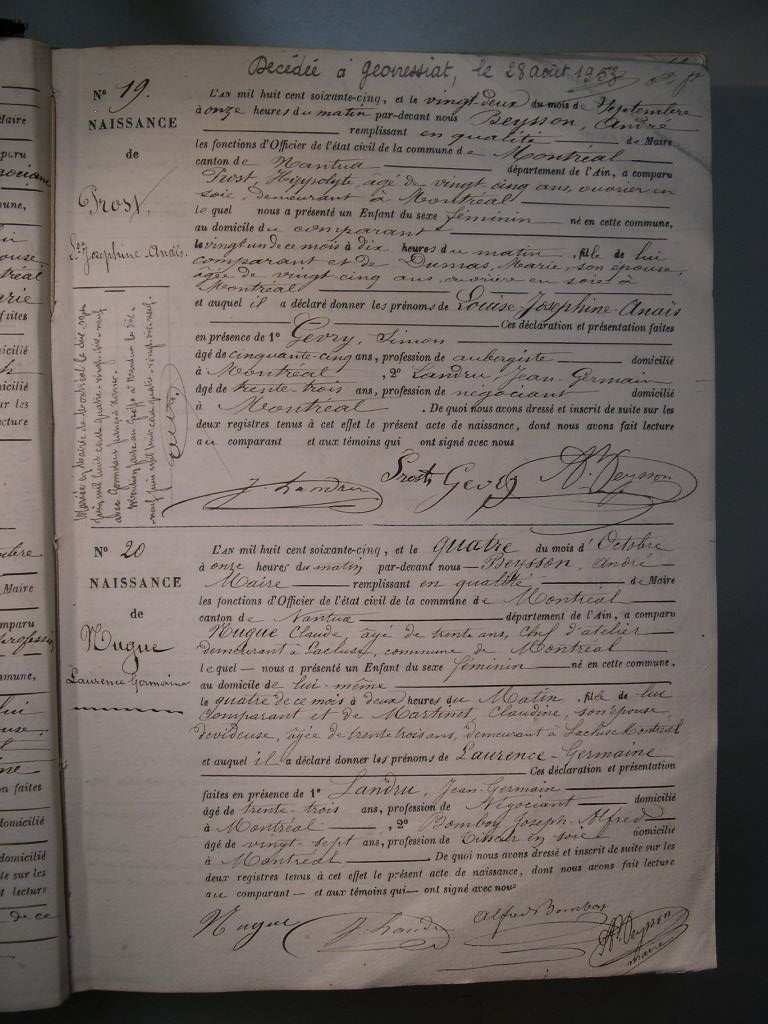 Décédée à Géovressiat, le 28 août 1958
N° 19.
NAISSANCE
de
Prost.
Lse Josephine-Anaïs.
L'AN mil huit cent soixante-cinq, et le vingt-deux du mois de Septembre
à onze heures du matin par-devant nous Beysson, André
remplissant en qualité de Maire
les fonctions d'Officier de l'état civil de la commune de Montréal
canton de Nantua département de l'Ain, a comparu
Prost, Hippolyte, âgé de vingt cinq ans, ouvrier en
soie, demeurant à Montréal
lequel nous a présenté un Enfant du sexe féminin né en cette commune,
au domicile du comparant
le vingt un de ce mois à dix heures du matin, fille de lui
comparant et de Dumas, Marie, son épouse,
âgée de vingt cinq ans, ouvrière en soie à
Montréal
et auquel il a déclaré donner les prénoms de Louise-Josephine-Anaïs
Ces déclaration et présentation faites
en présence de 1° Gevry, Simon
âgé de cinquante-cinq ans, profession de aubergiste domicilié
à Montréal, 2° Landru, Jean-Germain
âgé de trente-trois ans, profession de négociant domicilié
à Montréal. De quoi nous avons dressé et inscrit de suite sur les
deux registres tenus à cet effet le présent acte de naissance, dont nous avons fait lecture
au comparant et aux témoins qui ont signé avec nous
Prost Gevry An. Beysson
J. Landru
N° 20
NAISSANCE
de
Nugue
Laurence Germaine
L'AN mil huit cent soixante-cinq, et le quatre du mois d'Octobre
à onze heures du matin par-devant nous Beysson, André
Maire remplissant en qualité de Maire
les fonctions d'Officier de l'état civil de la commune de Montréal
canton de Nantua département de l'Ain, a comparu
Nugue Claude, âgé de trente ans, Chef d'atelier
demeurant à Lacluse, commune de Montréal
lequel nous a présenté un Enfant du sexe féminin né en cette commune,
au domicile de lui-même
le quatre de ce mois à deux heures du Matin, fille de lui
Comparant et de Martinet, Claudine, son épouse,
dévideuse, âgée de trente trois ans, demeurant à Lacluse Montréal
et auquel il a déclaré donner les prénoms de Laurence-Germaine
Ces déclaration et présentation
faites en présence de 1° Landru, Jean-Germain
âgé de trente-trois ans, profession de Négociant domicilié
à Montréal, 2° Bomboy Joseph-Alfred
âgé de vingt-sept ans, profession de Tisseur en soie domicilié
à Montréal. De quoi nous avons dressé et inscrit de suite sur les
deux registres tenus à cet effet le présent acte de naissance, dont nous avons fait lecture
au comparant et aux témoins qui ont signé avec nous
Nugue J. Landru Alfred Bomboy An. Beysson
Maire